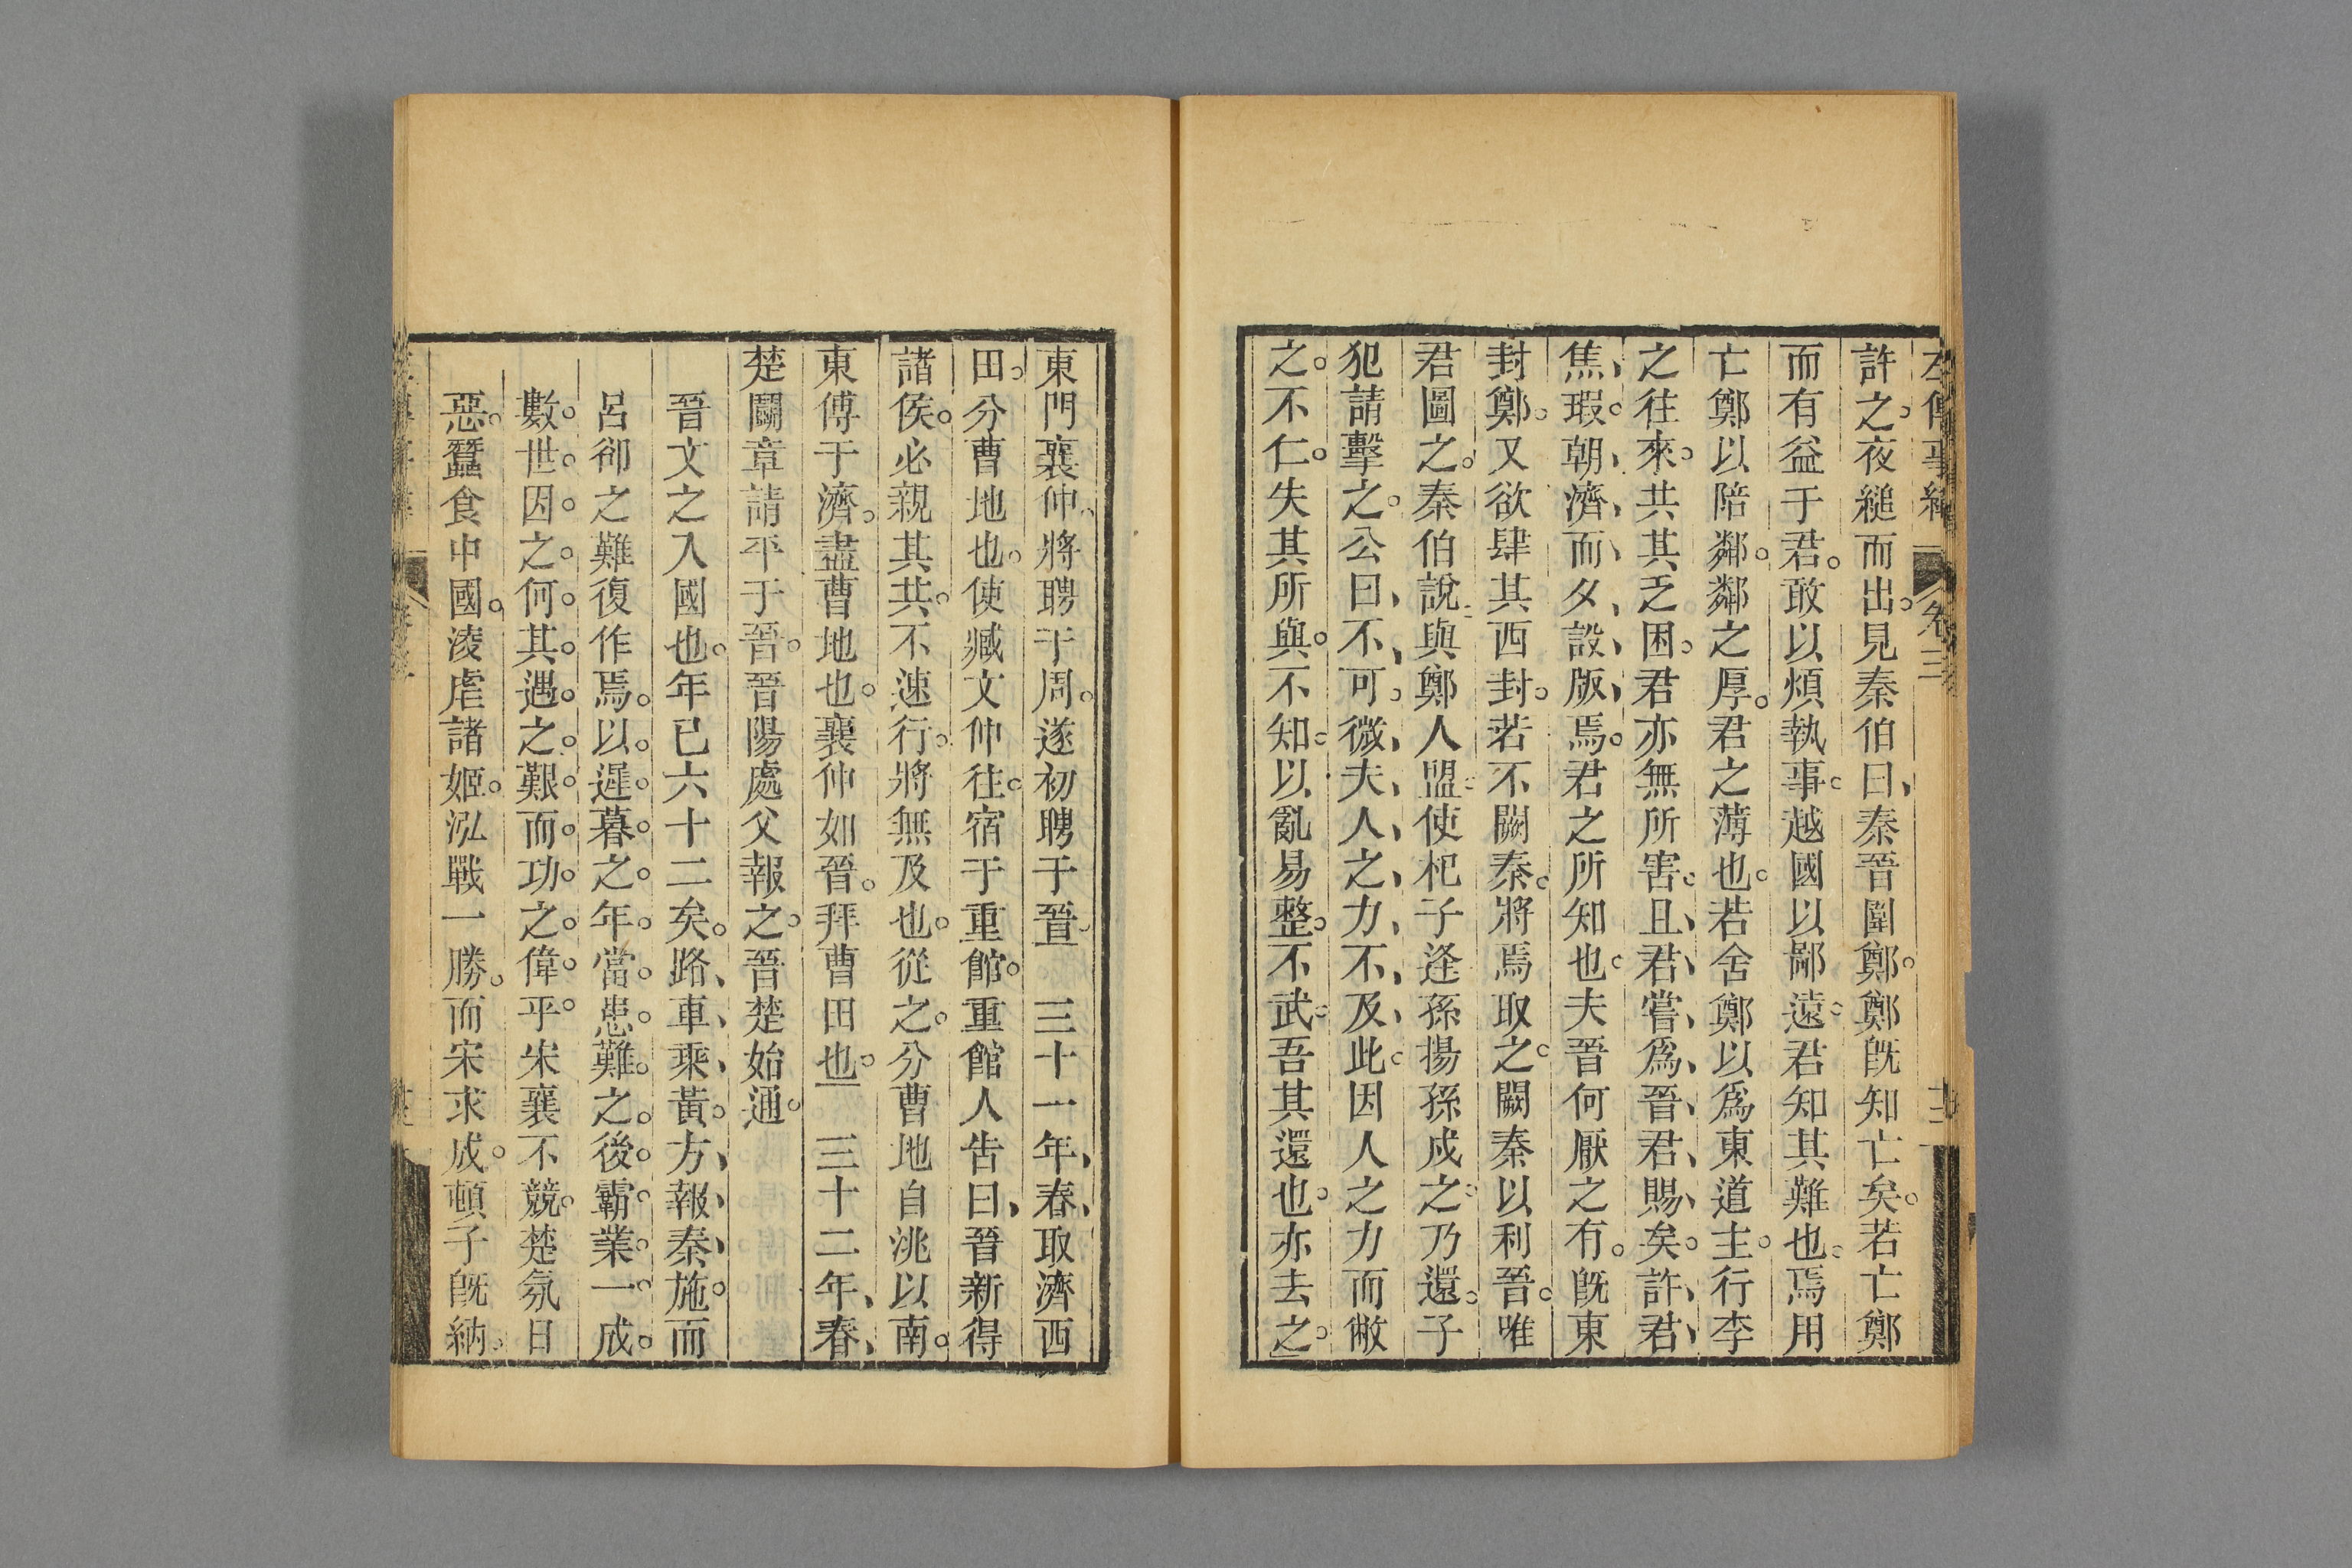 左傳事緯 卷三
許之。夜縋而出。見秦伯曰、秦晉圍鄭。鄭既知亡矣。若亡鄭
而有益于君。敢以煩執事。越國以鄙遠。君知其難也。焉用
亡鄭以陪鄰。鄰之厚。君之薄也。若舍鄭以爲東道主。行李
之往來。共其乏困。君亦無所害。且、君、嘗、爲、晉、君、賜、矣。許、君、
焦、瑕。朝、濟、而、夕、設、版、焉。君之所知也。夫晉何厭之有。既東
封鄭。又欲肆其西封。若不闕秦。將焉取之。闕秦以利晉。唯
君圖之。秦伯說。與鄭人盟。使杞子逢孫揚孫戍之。乃還。子
犯請擊之。公曰、不、可。微、夫、人、之、力、不、及、此。因人之力而敝
之。不仁。失其所與。不知。以亂易整。不武。吾其還也。亦去之。
東門襄仲、將聘于周。遂初聘于晉。 三十一年、春、取濟西
田。分曹地也。使臧文仲往。宿于重館。重館人告曰、晉新得
諸侯。必親其共。不速行。將無及也。從之。分曹地自洮以南。
東傅于濟。盡曹地也。襄仲如晉。拜曹田也。 三十二年、春、
楚鬭章請平于晉。晉陽處父報之。晉楚始通。
晉文之入國也。年已六十二矣。路、車、乘、黃。方、報、秦、施。而
呂郤之難復作焉。以。遲。暮。之。年。當。患。難。之。後。霸。業。一。成。
數。世。因。之。何。其。遇。之。艱。而。功。之。偉。乎。宋襄不競。楚氛日
惡。蠶食中國。淩虐諸姬。泓戰一勝。而宋求成。頓子既納。